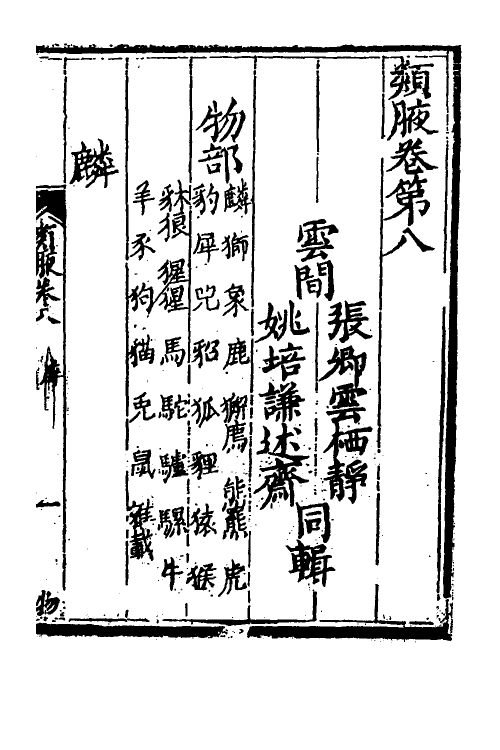 類腋卷第八
張卿雲栖靜
雲間
同輯
姚培謙述齋
物部
麟 獅 象 鹿 獬廌 熊羆 虎
豹 犀 兕 貂 狐 狸 猿 猴
豺狼 猩猩 馬 駝 驢 騾 牛
羊 豕 狗 猫 兎 鼠 雜載
麟
類腋卷八
一
物